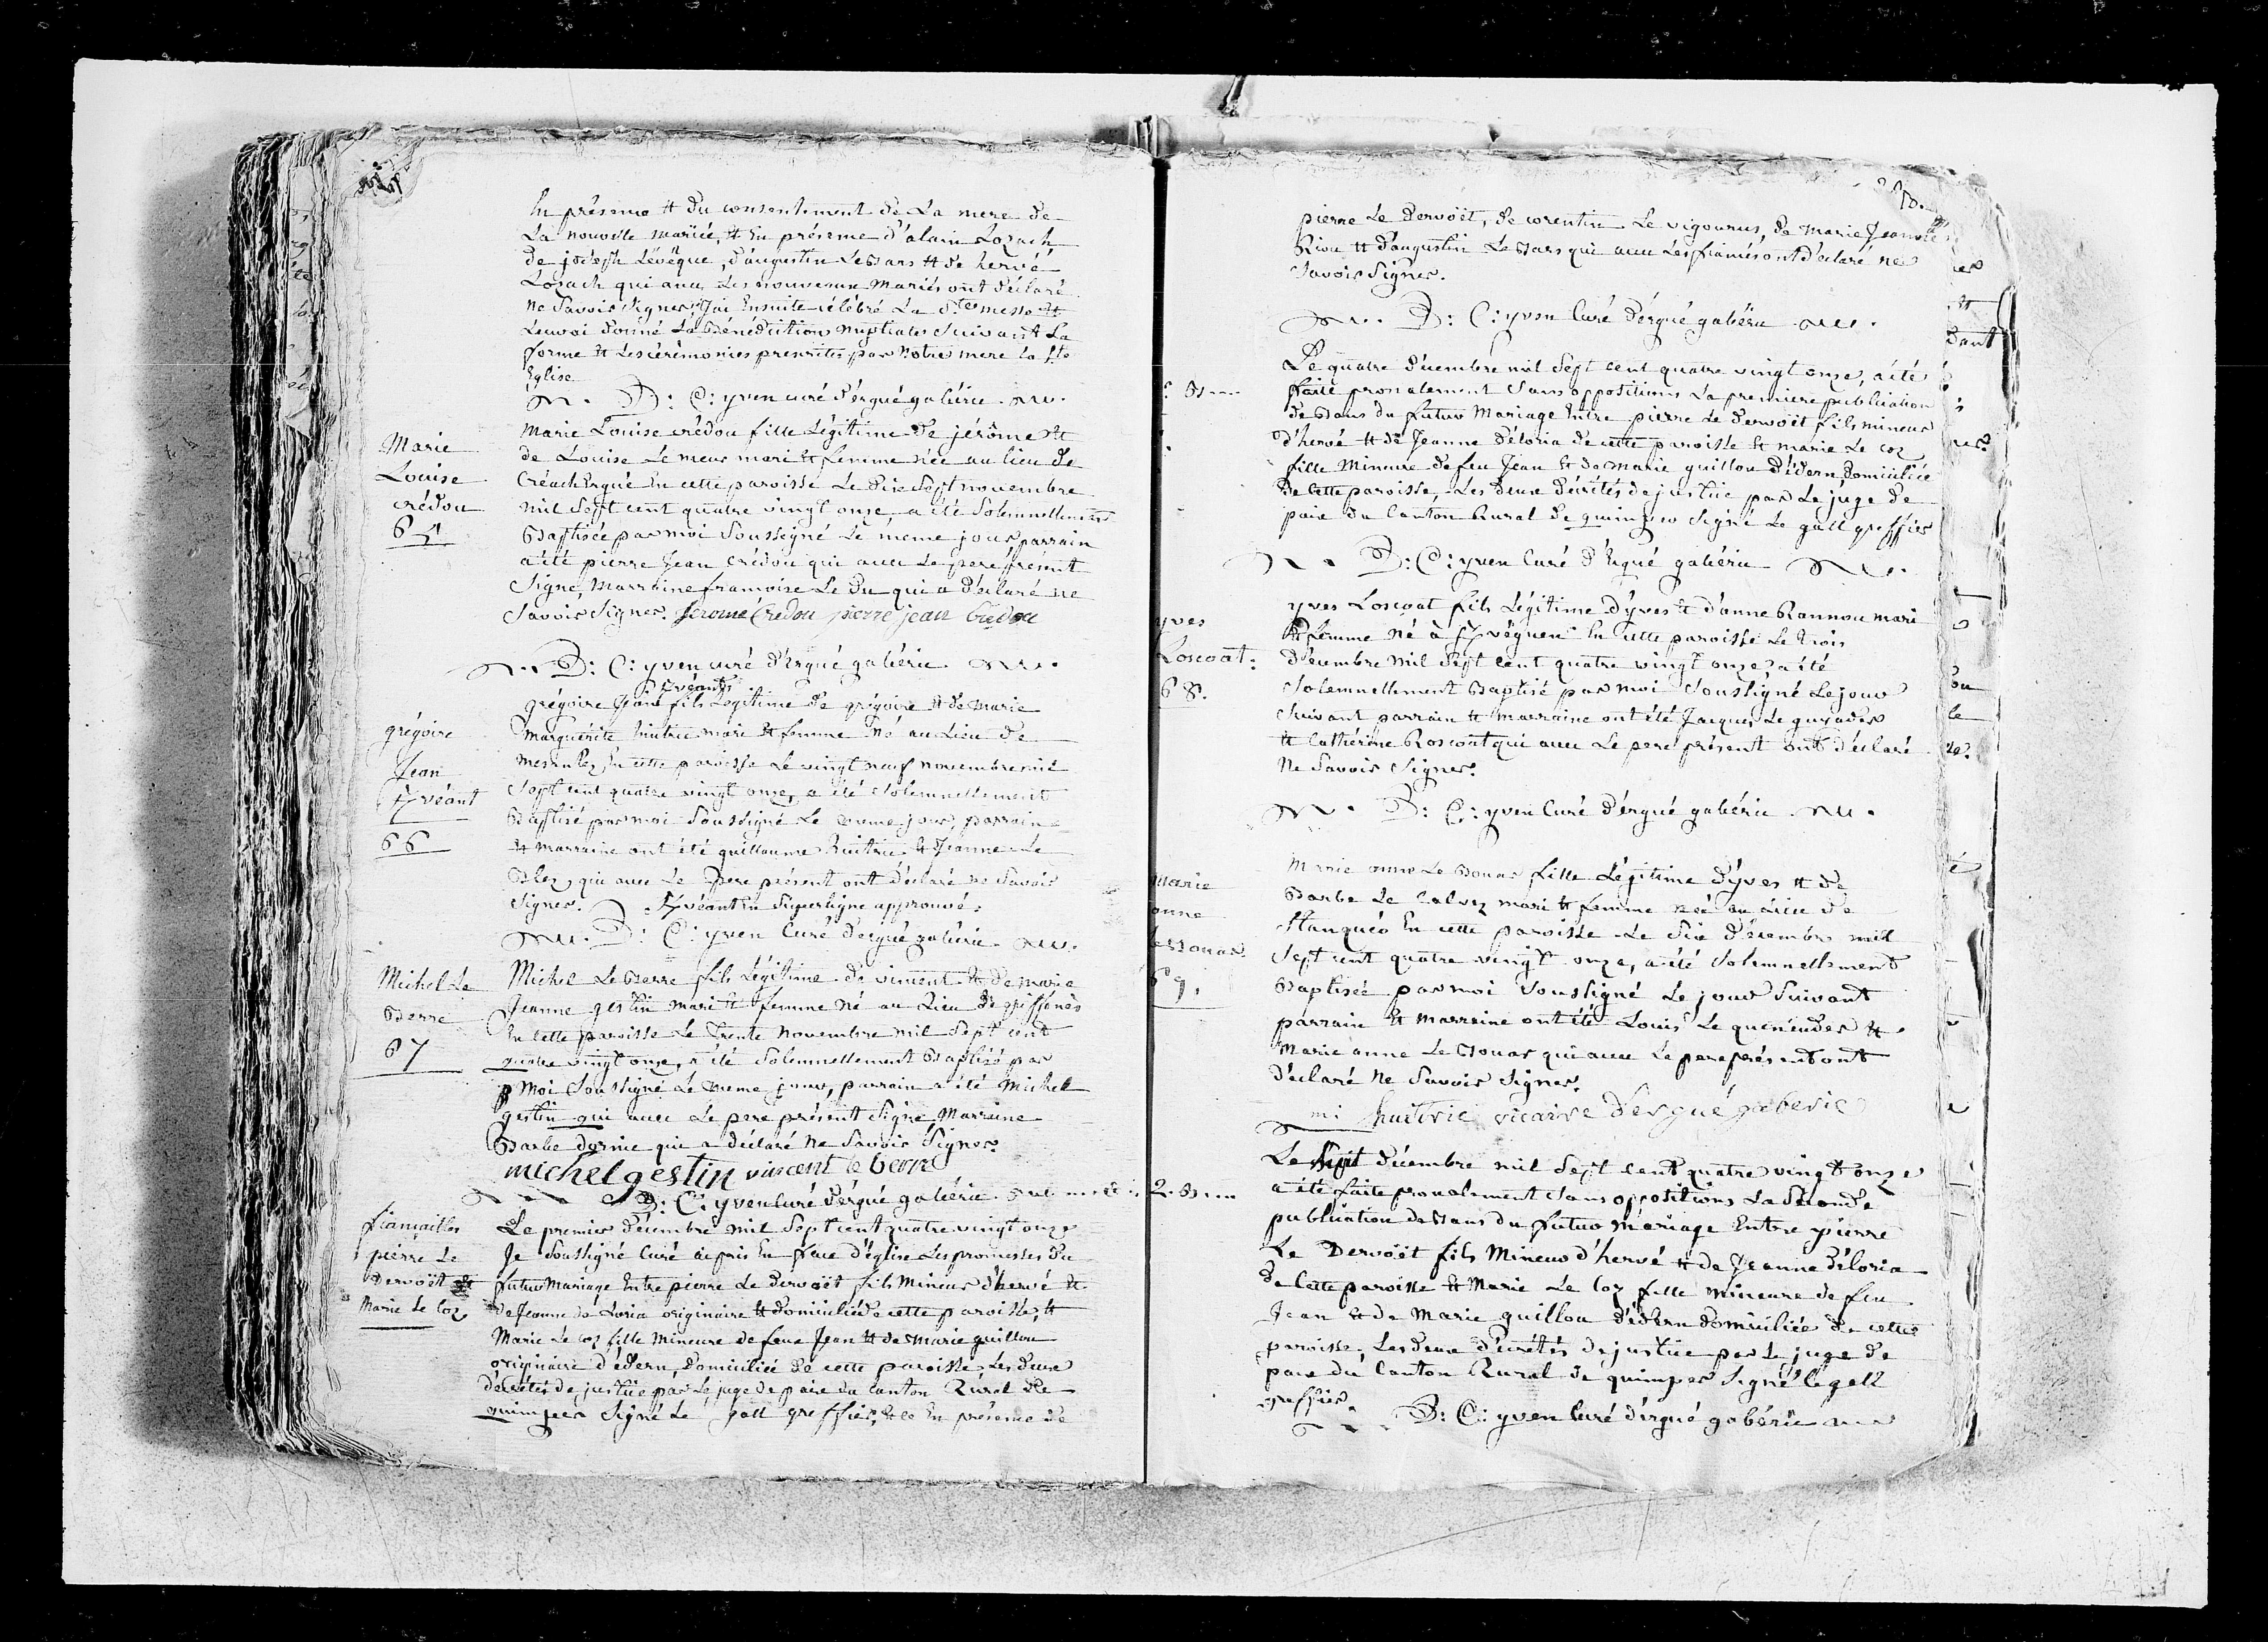 En présence & du consentement de La mere de
La nouvelle mariée, & En présence d'alain Lozach
de joseph Levêque, d'augustin Le Bars & de hervé
Lozach qui avec Les nouveaux Mariés ont déclaré
Ne Savoir Signer. J'ai Ensuite célébré La Ste messe &
Leur ai donné La Bénédiction Nuptiale Suivant La
forme & Les cérémonies prescrites par Notre mere La Ste
Eglise
D: C: yven curé d'ergué gabéric
Marie
Louise
crédou
65
Marie Louise crédou fille Légitime de jérôme &
de Louise Le meur mari & femme née au lieu de
Créach Ergué En cette paroisse Le dix Sept novembre
mil Sept cent quatre vingt onze a été Solemnellement
Baptisée par moi Soussigné Le même jour parrain
a été pierre Jean Crédou qui avec Le pere présent
Signe, Marraine francoise Le Du qui a déclaré ne
Savoir Signer. Jerome Credou pierre jean Credou
D: C: yven curé d'Ergué gabéric
grégoire
Jean
66
grégoire Jean fils Legitime de grégoire & de Marie
Marguerite huitric mari & femme Né au Lieu de
En cette paroisse Le vingt neuf novembre mil
Sept cent quatre vingt onze, a été Solemnellement
Baptisé par moi Soussigné Le même jour parrain
& marraine ont été guillaume huitric & Jeanne Le
qui avec Le pere présent ont déclaré ne Savoir
Signer. Superligne approuvé.
D: C: yven Curé d'ergué gabéric
Michel Le
Berre
67
Michel Le Berre fils Légitime de vincent & de marie
Jeanne gestin mari & femme né au Lieu de griffonès
En Cette paroisse Le Trente Novembre mil Sept cent
quatre vingt onze, a été Solemnellement Baptisé par
Moi Soussigné Le meme jour, parrain a été Michel
gestin qui avec Le pere présent Signe Marraine
Barbe qui a déclaré Ne Savoir Signer.
michel gestin vincent le berre
D: C: yven Curé d'ergué gabéric
fiançailles
pierre Le
Dervoët &
Marie Le Coz
Le premier décembre mil Sept cent quatre vingt onze
Je Soussigné Curé ai pris En face d'église Les promesses du
futur Mariage Entre pierre Le Dervoët fils Mineur d'hervé &
de Jeanne de Loria originaire & domicilié de cette paroisse, &
Marie Le coz fille Mineure de feu Jean & de Marie guillou
originaire d'édern domiciliée de cette paroisse, Les deux
décrétés de justice par Le juge de paix du Canton Rural de
quimper Signé Le gall greffier, & ce En présence de
pierre Le Dervoët, de corentin Le vigouroux, de Marie Jeanne
Riou & d'augustin Le Bars qui avec Les fiancés ont déclaré ne
Savoir Signer.
D: C: yven Curé d'érgué gabéric
Le quatre décembre mil Sept cent quatre vingt onze, a été
faite pronalement Sans oppositions La premiere publication
de Bans du futur Mariage Entre pierre Le dervoët fils mineur
d'hervé & de Jeanne déloria de cette paroisse & marie Le coz
fille Mineure de feu Jean & de Marie guillou d'édern, domiciliée
de Cette paroisse, Les deux décrétés de justice par Le juge de
paix du Canton Rural de quimper Signé Le gall greffier
D: C: yven Curé d'Ergué gabéric
yves
Loscoat:
68.
yves Loscoat fils Légitime d'yves & d'anne Rannou mari
& femme Né à En cette paroisse Le trois
décembre mil Sept cent quatre vingt onze, a été
Solemnellement Baptisé par moi Soussigné Le jour
Suivant parrain & marraine ont été Jacques Le guyader
& Cathérine Roscoat qui avec Le pere présent ont déclaré
Ne Savoir Signer.
D: C: yven Curé d'érgué gabéric
Marie
anne
69.
Marie anne Le fille Légitime d'yves & de
Barbe Le Calvez mari & femme née au Lieu de
Stanquéo En cette paroisse Le Six décembre mil
Sept cent quatre vingt onze, a été Solemnellement
Baptisée par moi Soussigné Le jour Suivant
parrain & marraine ont été Louis Le &
Marie anne Le qui avec Le pere présent ont
déclaré Ne Savoir Signer.
mi huitric vicaire d'ergué gaberic
2. B
Le Sept décembre mil Sept cent quatre vingt onze
a été faite pronalement Sans oppositions La Seconde
publication de Bans du futur Mariage Entre pierre
Le Dervoët fils Mineur d'hervé & de Jeanne déloria
de Cette paroisse & Marie Le Coz fille Mineure de feu
Jean & de Marie guillou d'édern domiciliée de cette
paroisse, Les deux décrétés de justice par Le juge de
paix du Canton Rural de quimper Signé Le gall
greffier.
D: C: yven Curé d'ergué gabéric